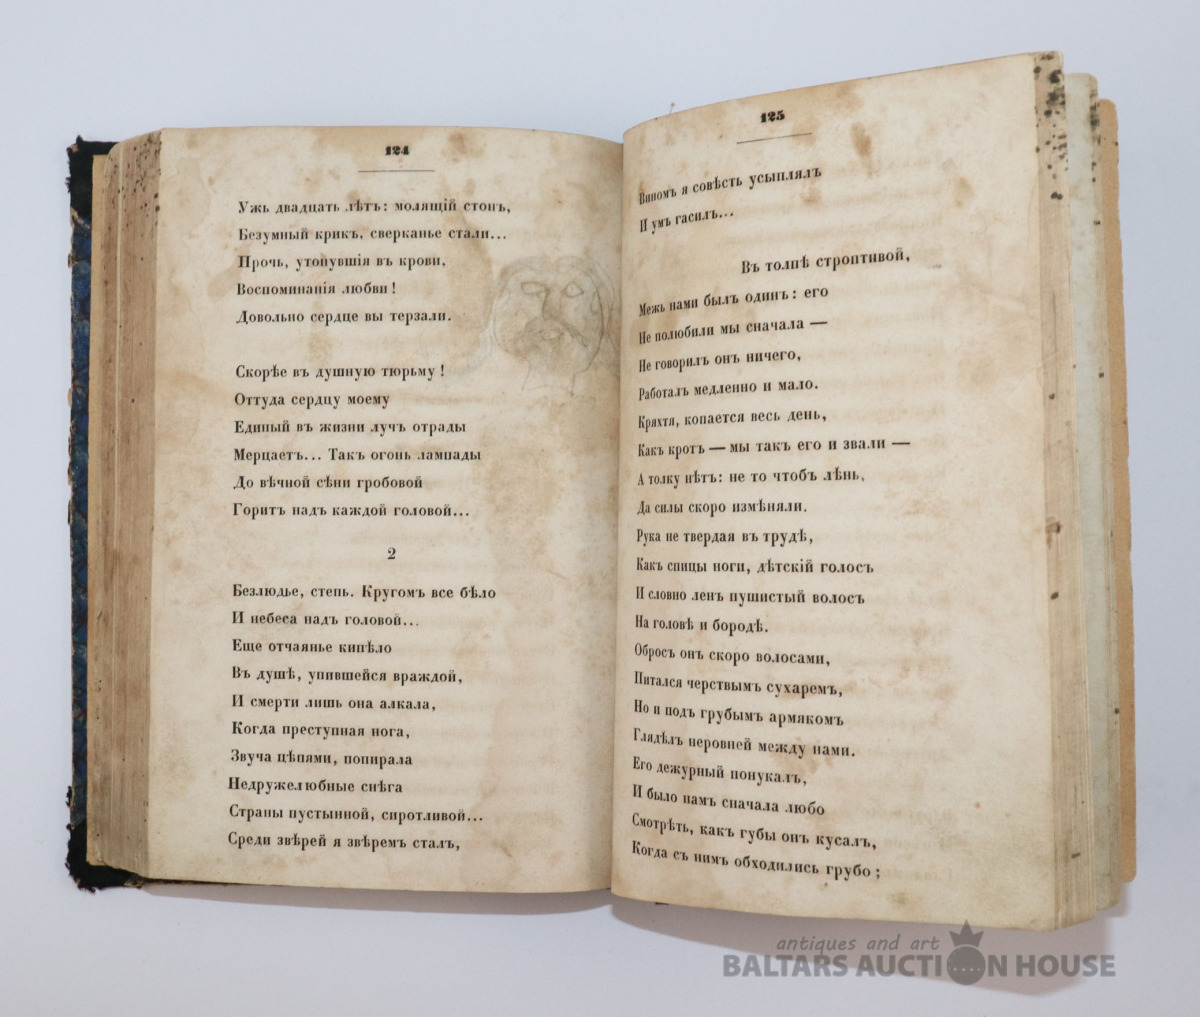 124
Ужь двадцать лѣтъ: молящій стонъ,
Безумный крикъ, сверканье стали...
Прочь, утонувшія въ крови,
Воспоминанія любви!
Довольно сердце вы терзали.
Скорѣе въ душную тюрьму!
Оттуда сердцу моему
Единый въ жизни лучъ отрады
Мерцаетъ... Такъ огонь лампады
До вѣчной сѣни гробовой
Горитъ надъ каждой головой...
2
Безлюдье, степь. Кругомъ все бѣло
И небеса надъ головой...
Еще отчаянье кипѣло
Въ душѣ, упившейся враждой,
И смерти лишь она алкала,
Когда преступная нога,
Звуча цѣпями, попирала
Недружелюбные снѣга
Страны пустынной, сиротливой...
Среди звѣрей я звѣремъ сталъ,
125
Виномъ я совѣсть усыплялъ
И умъ гасилъ...
Въ толпѣ строптивой,
Межь нами былъ одинъ: его
Не полюбили мы сначала —
Не говорилъ онъ ничего,
Работалъ медленно и мало.
Кряхтя, копается весь день,
Какъ кротъ — мы такъ его и звали —
А толку нѣтъ: не то чтобъ лѣнь,
Да силы скоро измѣняли.
Рука не твердая въ трудѣ,
Какъ спицы ноги, дѣтскій голосъ
И словно ленъ пушистый волосъ
На головѣ и бородѣ.
Обросъ онъ скоро волосами,
Питался черствымъ сухаремъ,
Но и подъ грубымъ армякомъ
Глядѣлъ неровней между нами.
Его дежурный понукалъ,
И было намъ сначала любо
Смотрѣть, какъ губы онъ кусалъ,
Когда съ нимъ обходились грубо;
antiques and art
BALTARS AUCTION HOUSE